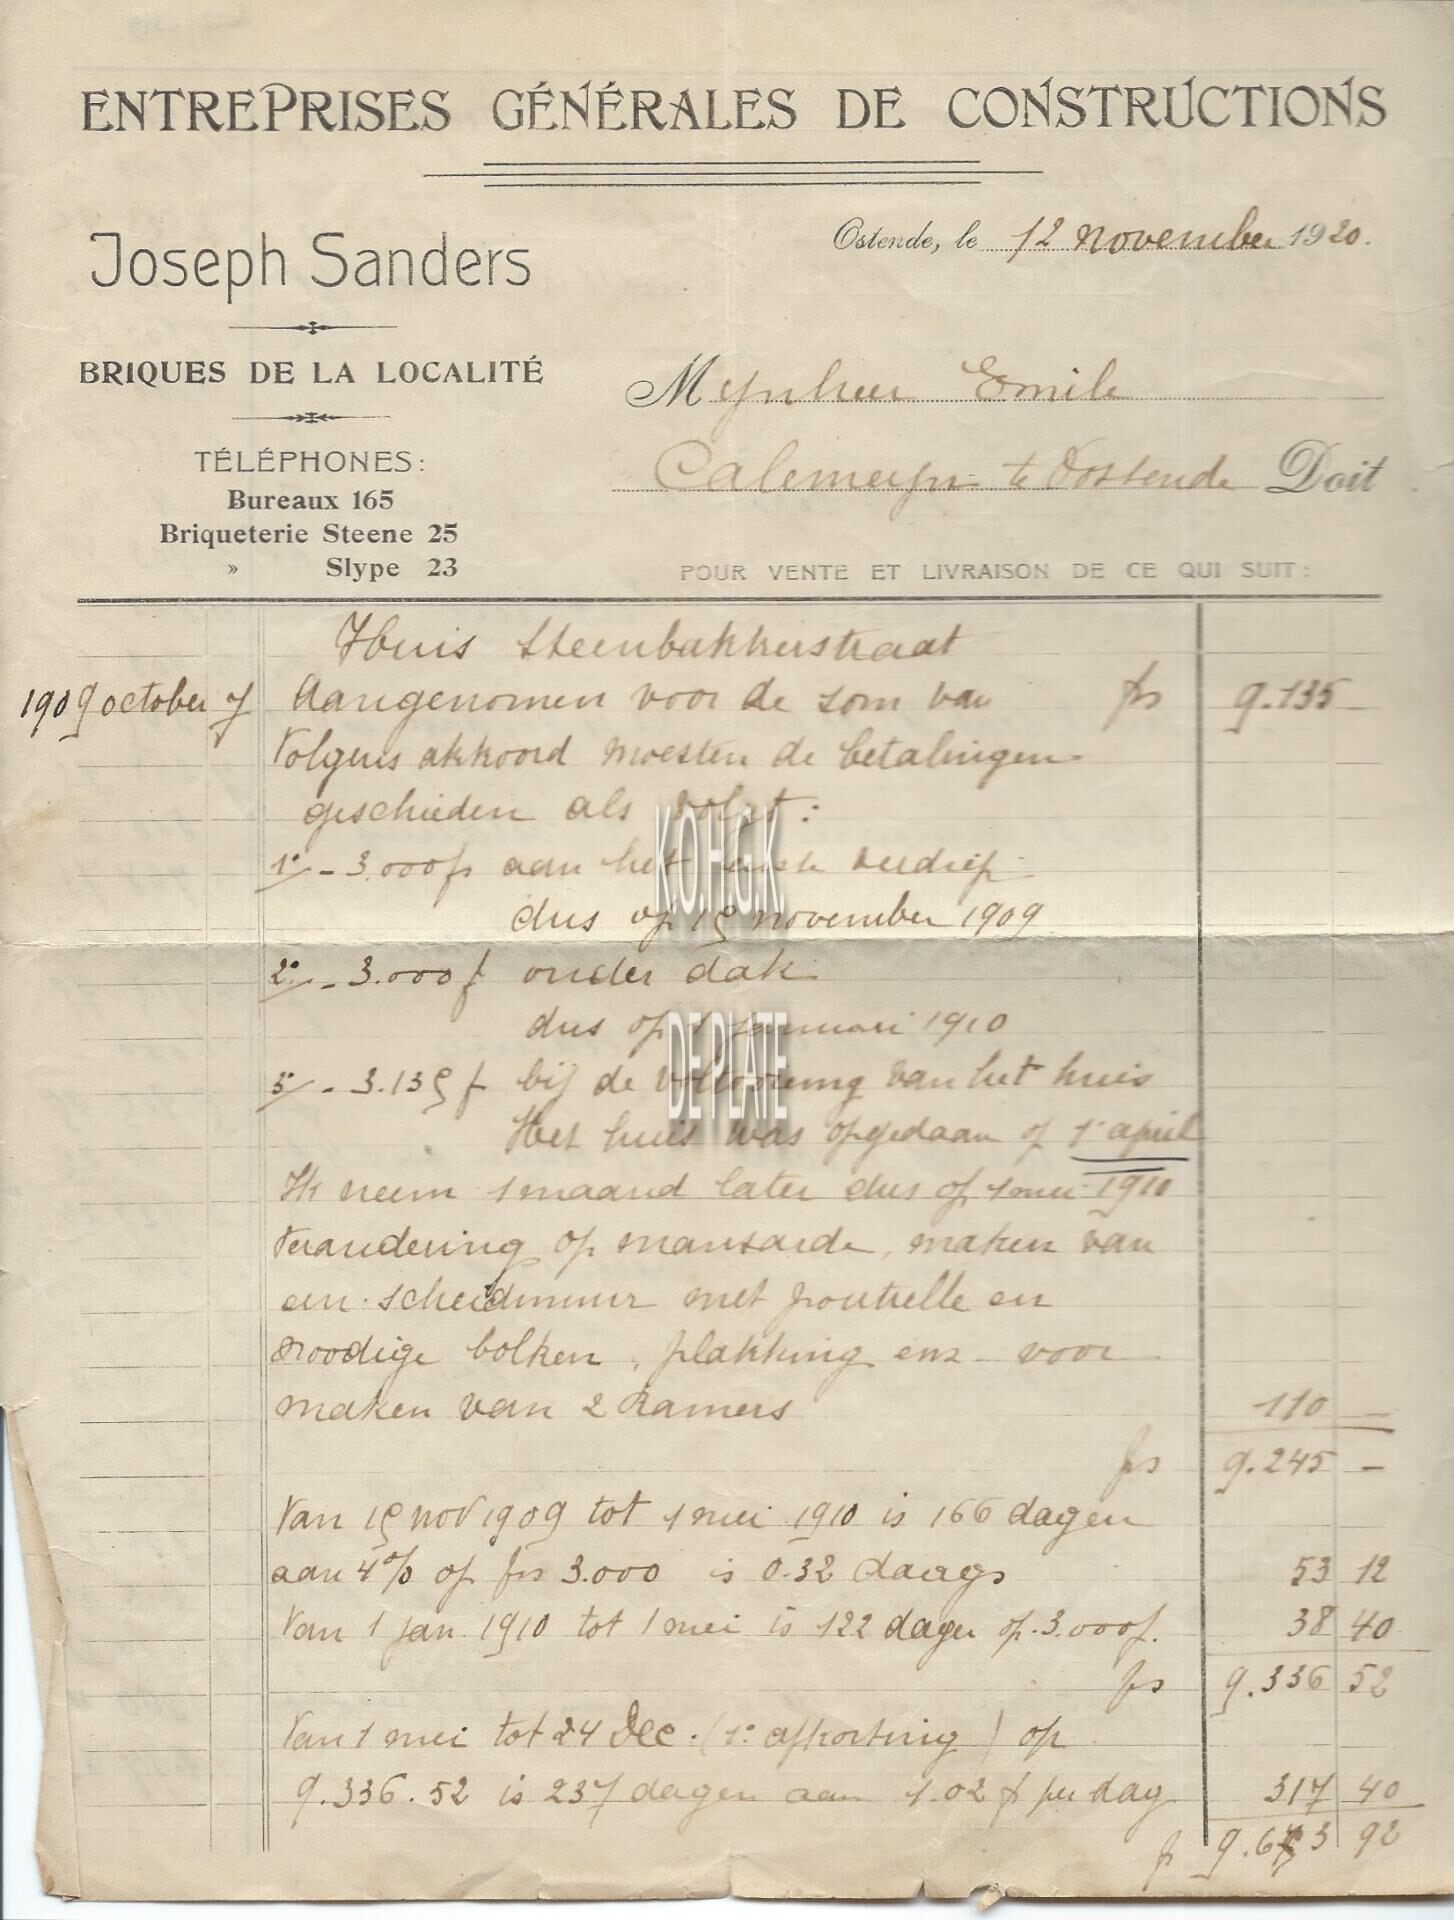 ENTREPRISES GÉNÉRALES DE CONSTRUCTIONS
Joseph Sanders
Ostende, le 12 november 1920.
BRIQUES DE LA LOCALITÉ
Mynheer Emile
TÉLÉPHONES:
Calemeyn te Oostende Doit
Bureaux 165
Briqueterie Steene 25
» Slype 23
POUR VENTE ET LIVRAISON DE CE QUI SUIT:
Huis Steenbakkerstraat
1909 october 7 Aangenomen voor de som van frs 9.135 –
Volgens akkoord moesten de betalingen
geschieden als volgt:
1°/ - 3.000 fr aan het eerste verdiep
dus op 15 november 1909
2°/ - 3.000 f onder dak
dus op 1 januari 1910
3°/ - 3.135 f bij de voltooiing van het huis
Het huis was opgedaan op 1 april
Ik neem 1 maand later dus op 1 mei 1910
Verandering op mansarde, maken van
een scheidmuur met poutrelle en
noodige bolken, plakking enz voor
maken van 2 Kamers 110 –
frs 9.245 –
Van 15 nov 1909 tot 1 mei 1910 is 166 dagen
aan 4% op frs 3.000 is 0.32 daags 53 12
Van 1 jan 1910 tot 1 mei is 122 dagen op 3.000 f. 38 40
frs 9.336 52
Van 1 mei tot 24 Dec. (1e afkorting) op
9.336.52 is 237 dagen aan 1.02 f per dag 317 40
fr 9.653 92
K.O.H.G.K.
DE PLATE